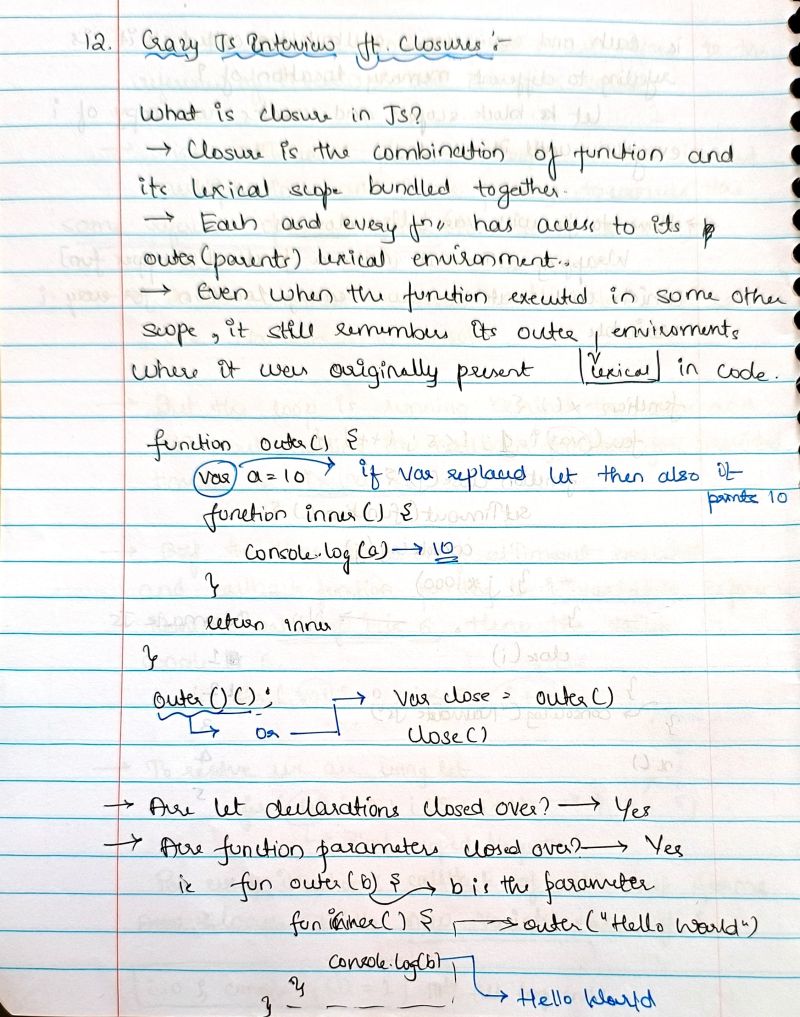 12. Crazy Js Interview ft. Closures :-
What is closure in Js?
→ Closure is the combination of function and
its lexical scope bundled together.
→ Each and every fn,, has access to its
outer (parents) lexical environment..
→ Even when the function executed in some other
scope, it still remember its outer enviroments
where it was originally present [lexical] in code.
function outer() {
var a = 10 → if var replaced let then also it
prints 10
function inner() {
console.log(a) → 10
}
return inner
}
outer()(); → var close = outer()
↳ or close()
→ Are let declarations closed over? → Yes
→ Are function parameters closed over? → Yes
ie fun outer(b) { → b is the parameter
fun inner() { → outer("Hello World")
console.log(b)
} → Hello World
}